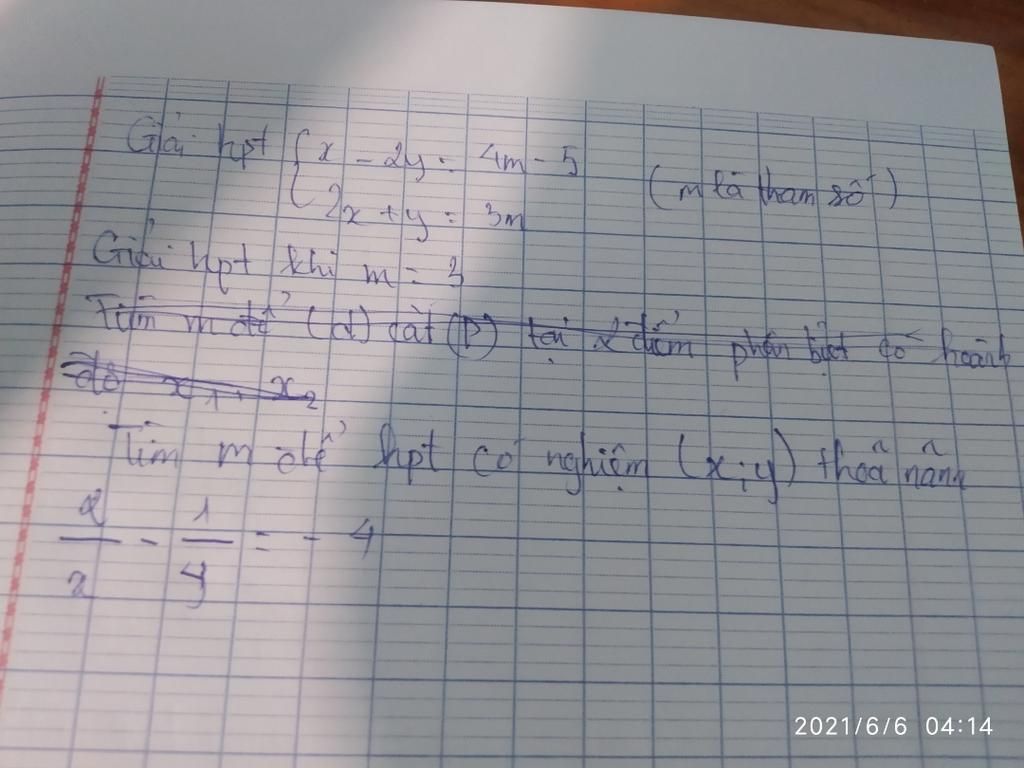 Giải hpt { x - 2y = 4m - 5
2x + y = 3m (m là tham số)
Giải hpt khi m = 3
Tìm m để (d) cắt (P) tại 2 điểm phân biệt có hoành
độ x1, x2
Tìm m để hpt có nghiệm (x;y) thoã mãn
2/x - 1/y = - 4
2021/6/6 04:14